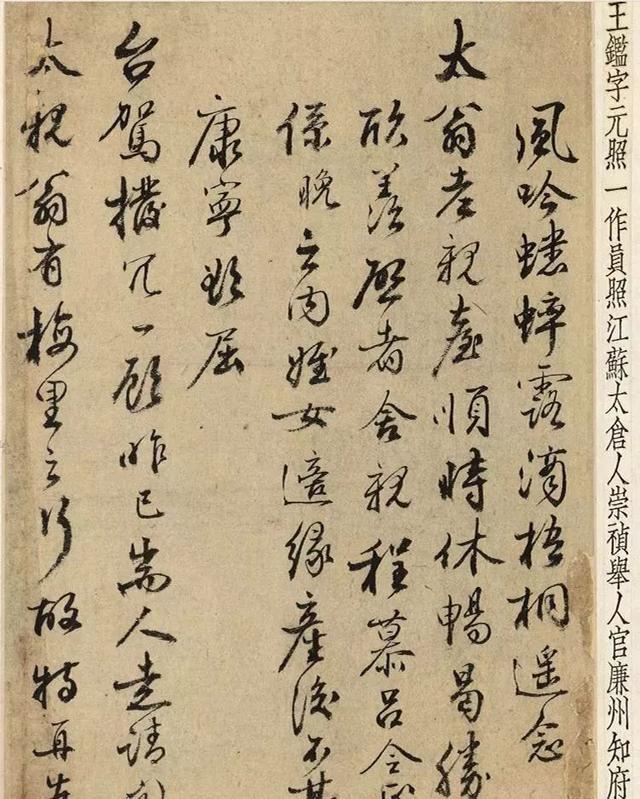 王鑑字元照一作員照江蘇太倉人崇禎舉人官廉州知府
風吟蟋蟀露滴梧桐遥念
太翁老親臺順時休暢曷勝
欣羨啟者舍親程慕呂令
係晚之内姪女適緣産後不甚
康寧欲屈
台駕撥冗一顧昨已耑人走請
太親翁有梅里之行故特再